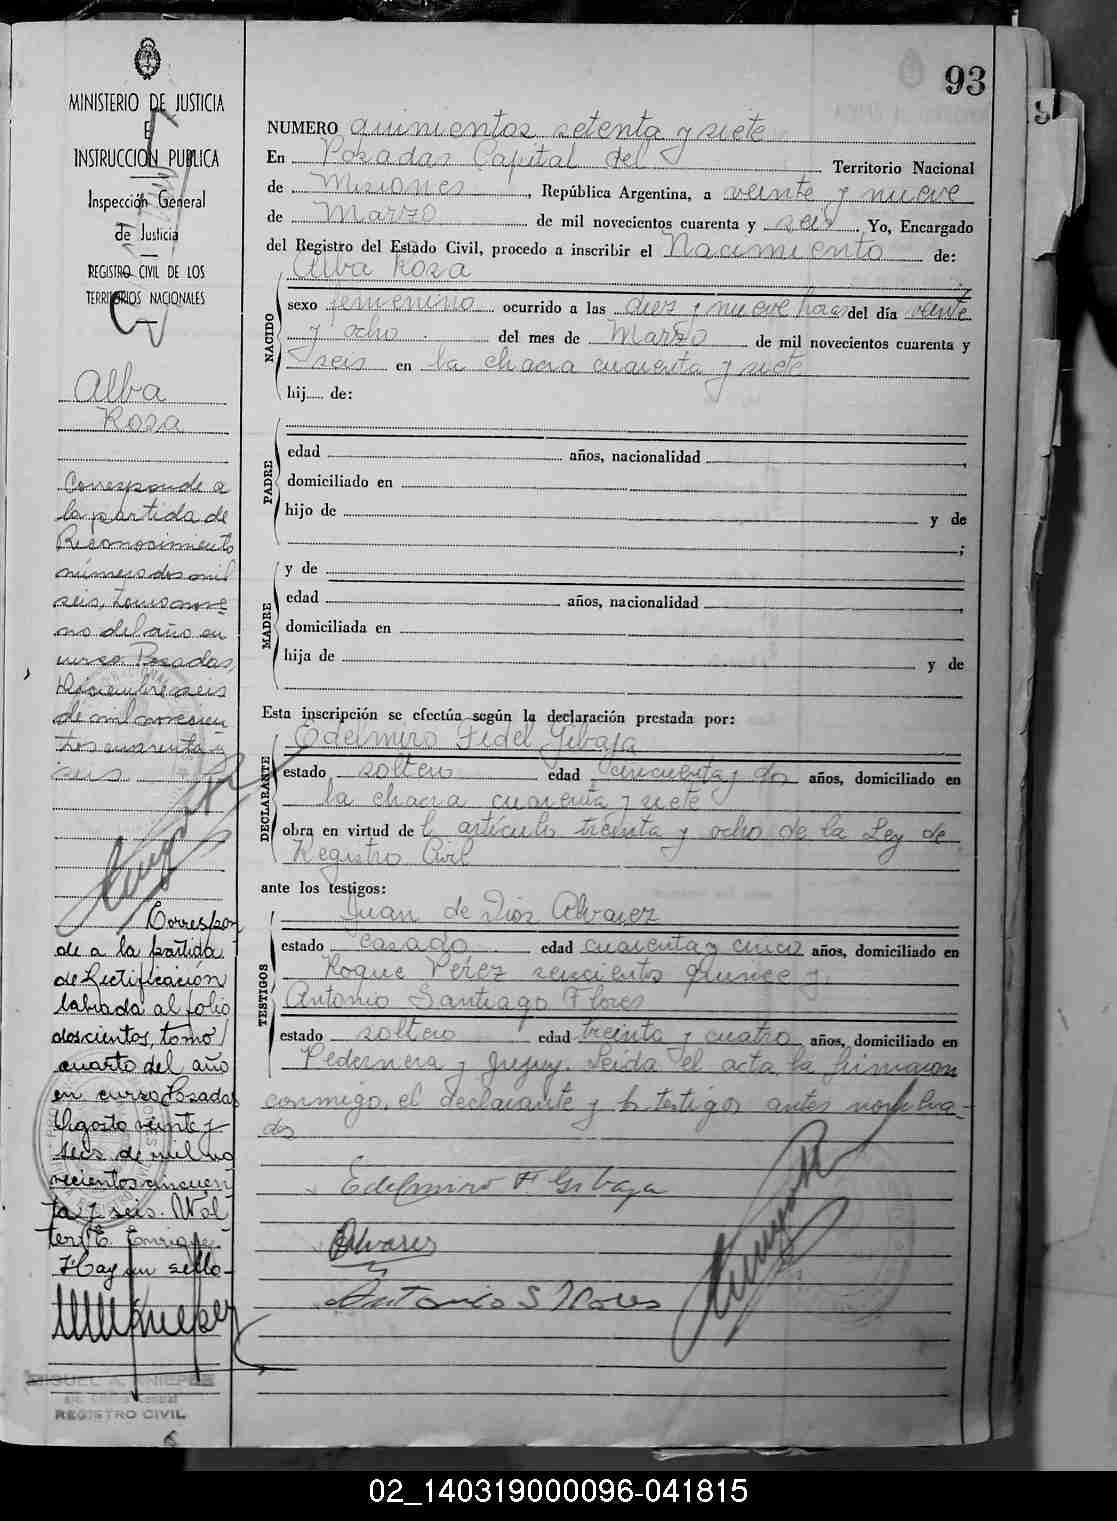 93
MINISTERIO DE JUSTICIA
E
INSTRUCCION PUBLICA
Inspección General
de Justicia
REGISTRO CIVIL DE LOS
TERRITORIOS NACIONALES
Alba
Rosa
Corresponde a
la partida de
Reconocimiento
número dos mil
seis, tomo nove
no del año en
curso. Posadas,
Diciembre seis
de mil novecien
tos cuarenta y
seis
Correspon
de a la partida
de Rectificación
labrada al folio
doscientos, tomo
cuarto del año
en curso Posadas
Agosto veinte y
seis de mil no
vecientos cincuen
ta y seis. Wal
ter E. Enrique
Hay un sello
MIGUEL A. KNIEPER
REGISTRO CIVIL
NUMERO quinientos setenta y siete
En Posadas Capital del Territorio Nacional
de Misiones, República Argentina, a veinte y nueve
de Marzo de mil novecientos cuarenta y seis. Yo, Encargado
del Registro del Estado Civil, procedo a inscribir el Nacimiento de:
Alba Rosa
NACIDO
sexo femenino ocurrido a las diez y nueve horas del día veinte
y ocho del mes de Marzo de mil novecientos cuarenta y
seis en la chacra cuarenta y siete
hij..... de:
PADRE
edad años, nacionalidad ,
domiciliado en
hijo de y de
;
MADRE
y de
edad años, nacionalidad ,
domiciliada en
hija de y de
Esta inscripción se efectúa según la declaración prestada por:
DECLARANTE
Edelmiro Fidel Gibaja
estado soltero edad cincuenta y dos años, domiciliado en
la chacra cuarenta y siete
obra en virtud de l artículo treinta y ocho de la Ley de
Registro Civil
ante los testigos:
TESTIGOS
Juan de Dios Alvarez
estado casado edad cuarenta y cinco años, domiciliado en
Roque Pérez seiscientos quince y
Antonio Santiago Flores
estado soltero edad treinta y cuatro años, domiciliado en
Pedernera y Jujuy. Leida el acta la firmaron
conmigo, el declarante y los testigos antes nombra-
dos
Edelmiro F. Gibaja
Alvares
Antonio S Flores
02_140319000096-041815